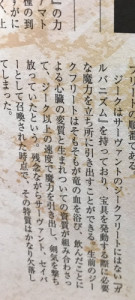 ジークはサーヴァントのジークフリートにはない『ガ
ルバニズム』を持っており、宝具を発動する際に必要
な魔力を立ち所に引き出すことができる。生前のジー
クフリートはそもそもが竜の血を浴び、飲んだことに
よる心臓の変質と生まれついての資質が組み合わさっ
て、ジーク以上の速度で魔力を引き出し、剣気を撃ち
放っていたという。残念ながらサーヴァント
ーとして召喚された時点で、その特質はかなり欠落し
てしまった。
の力
アマト
種の到